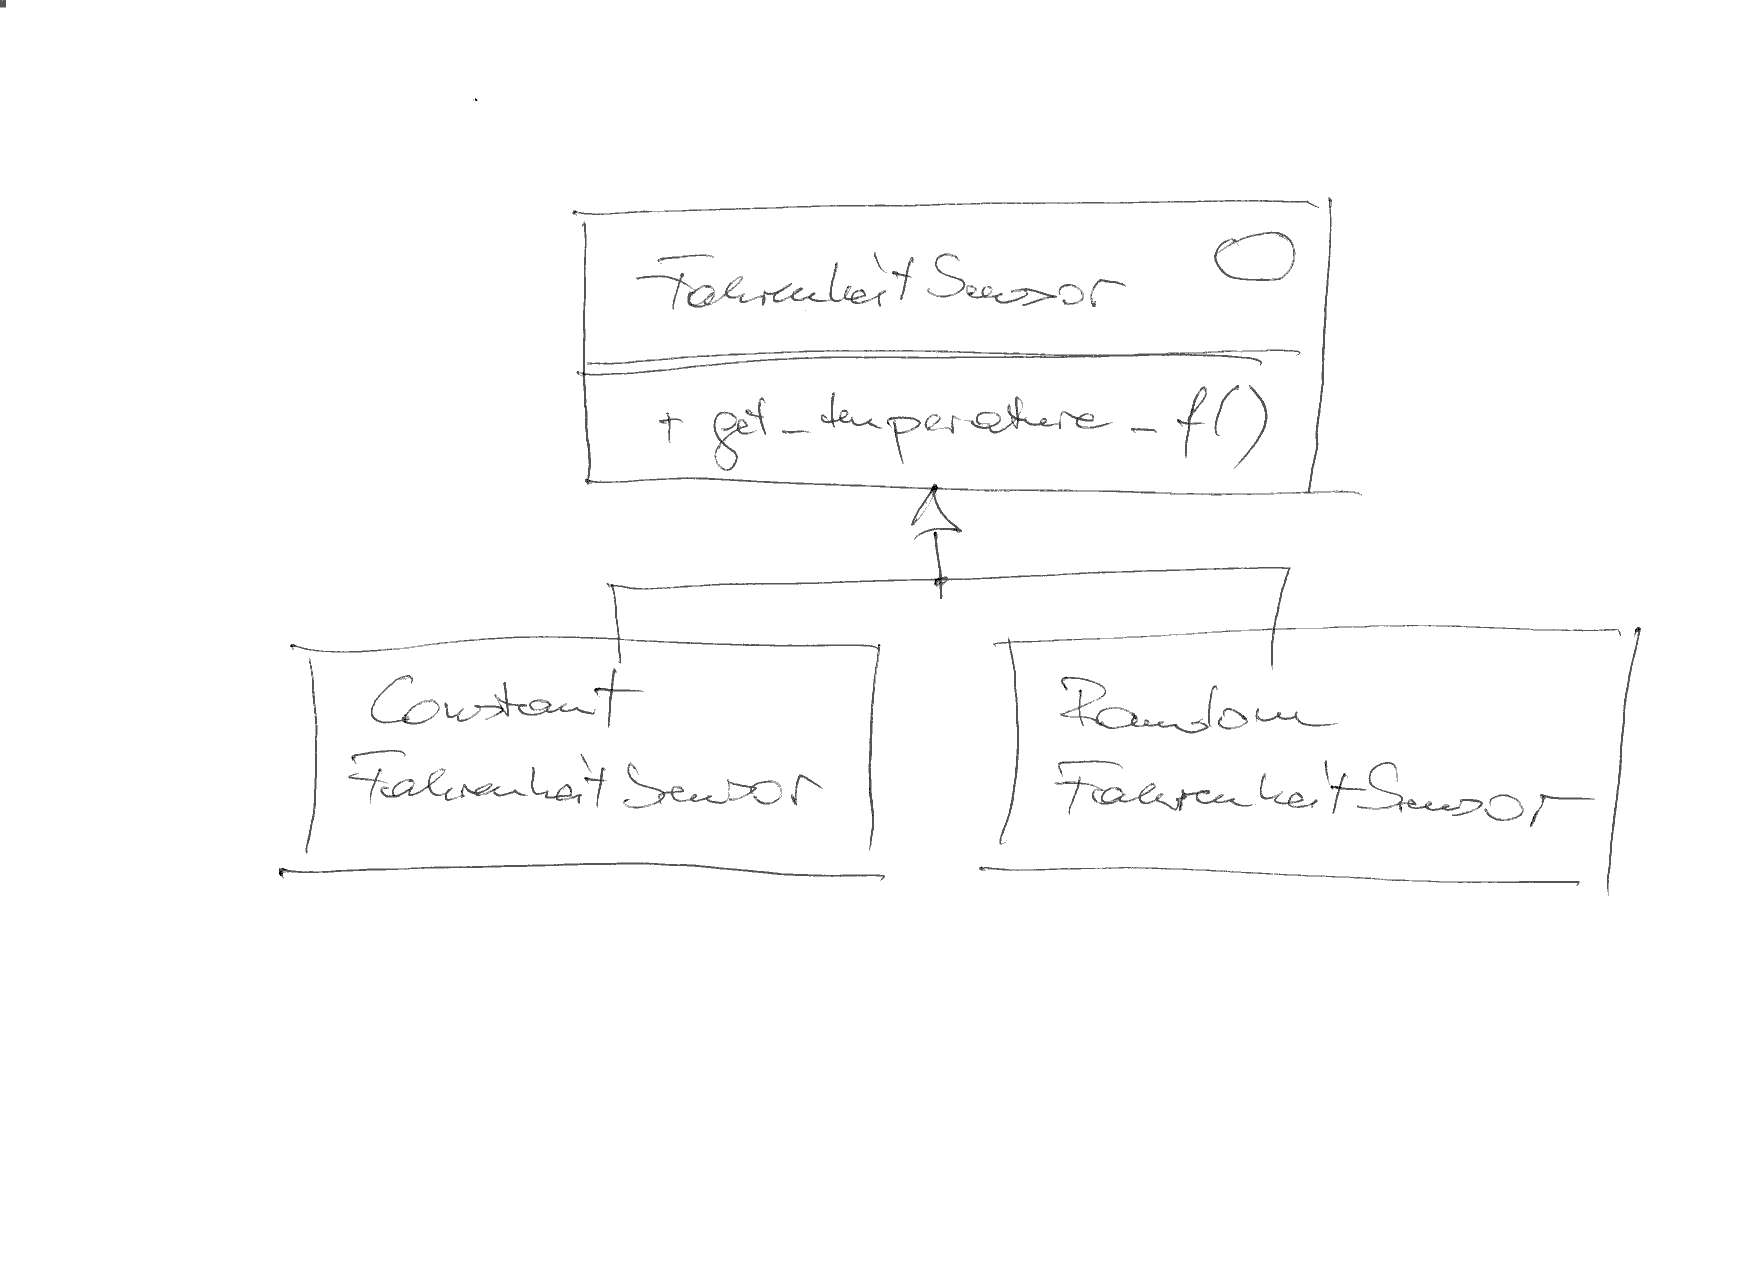 FahrenheitSensor
+ get_temperature_f()
Constant
FahrenheitSensor
Random
FahrenheitSensor